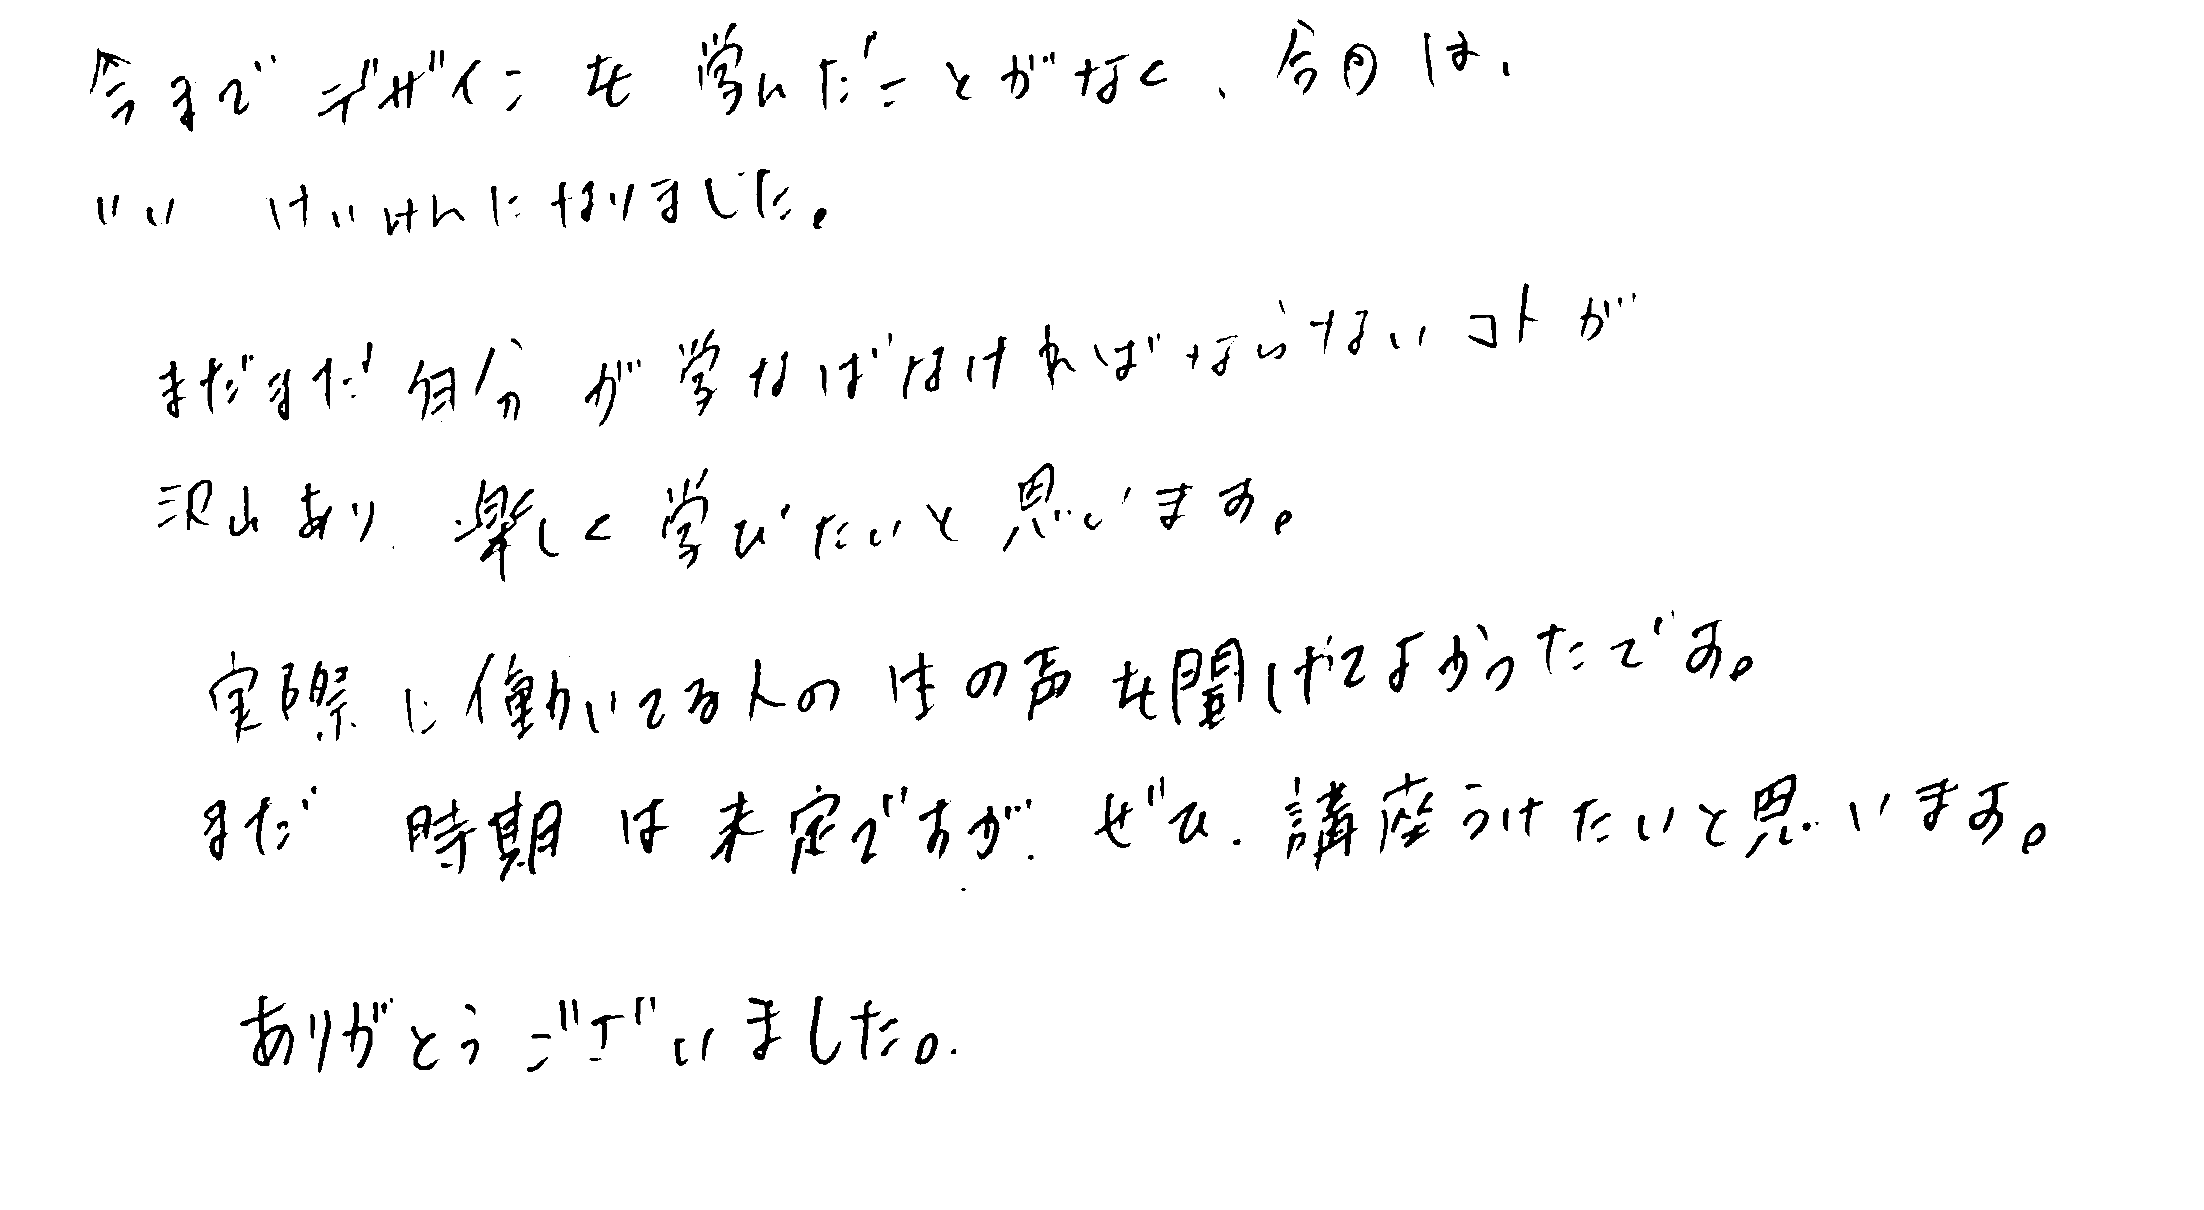 今までデザインを学んだことがなく、今日は、
いい けいけんになりました。
まだまだ自分が学なばなければならないコトが
沢山あり、楽しく学びたいと思います。
実際に働いてる人の生の声を聞けてよかったです。
まだ 時期は未定ですが、ぜひ、講座うけたいと思います。
ありがとうございました。